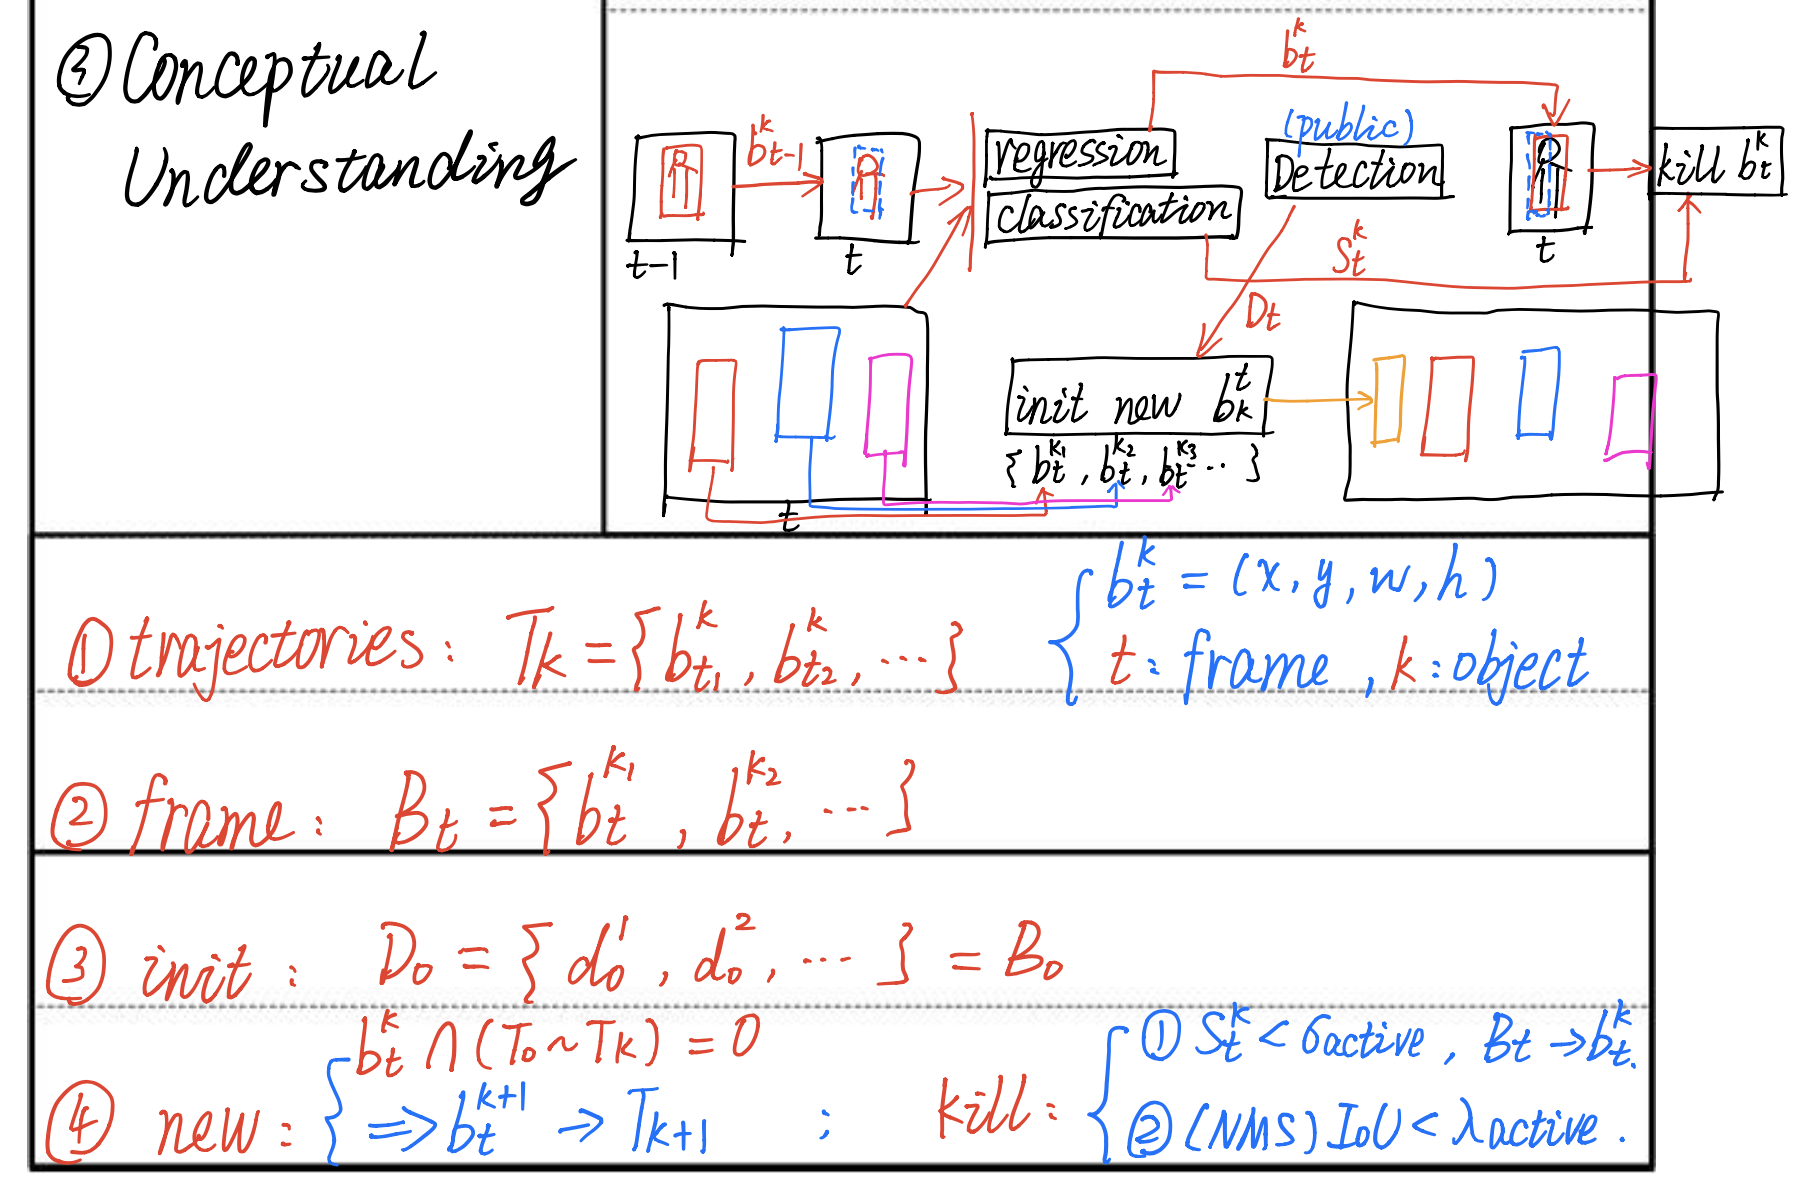 ③ Conceptual
Understanding
b_t^k
(public)
b_{t-1}^k
regression
Detection
kill b_t^k
classification
t-1
t
S_t^k
t
D_t
init new b_k^t
{ b_t^{k1}, b_t^{k2}, b_t^{k3} ... }
t
① trajectories: T_k = { b_{t1}^k, b_{t2}^k, ... }
b_t^k = (x, y, w, h)
t: frame, k: object
② frame: B_t = { b_t^{k1}, b_t^{k2}, ... }
③ init: D_0 = { d_0^1, d_0^2, ... } = B_0
④ new: b_t^k ∩ (T_0 ~ T_k) = 0
⇒ b_t^{k+1} → T_{k+1} ;
kill: ① S_t^k < σactive, B_t → b_t^k.
② (NMS) IoU < λactive.